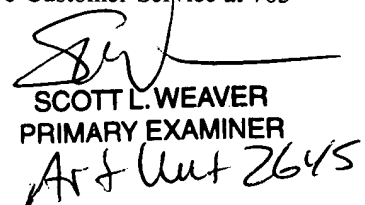 Customer Service at 703
SCOTT L. WEAVER
PRIMARY EXAMINER
Art Unit 2645